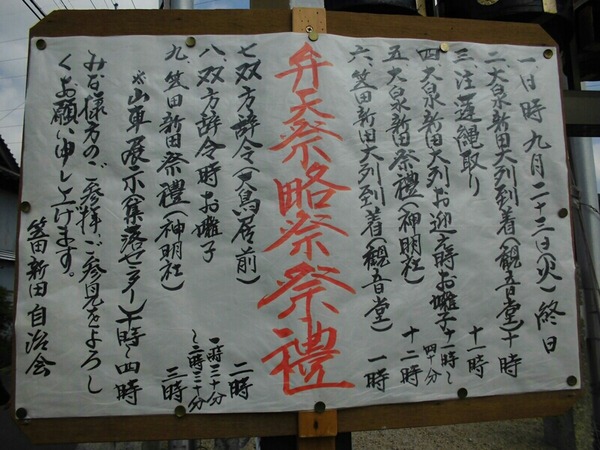 一日時 九月二十三日(火)終日
二 大泉新田大列到着(観音堂)十時
三 注連縄取り 十一時
四 大泉新田大列お迎え時お囃子 十一時〜四十分
五 大泉新田祭禮(神明社) 十二時
六 笠田新田大列到着(観音堂) 一時
弁天祭略祭祭禮
七 双方辞令(鳥居前) 二時
八 双方辞令時お囃子 一時三十分〜二時三十分
九 笠田新田祭禮(神明社) 三時
※山車展示(集落センター)十時〜四時
みな様方のご参拝、ご参見をよろし
くお願い申し上げます。
笠田新田自治会